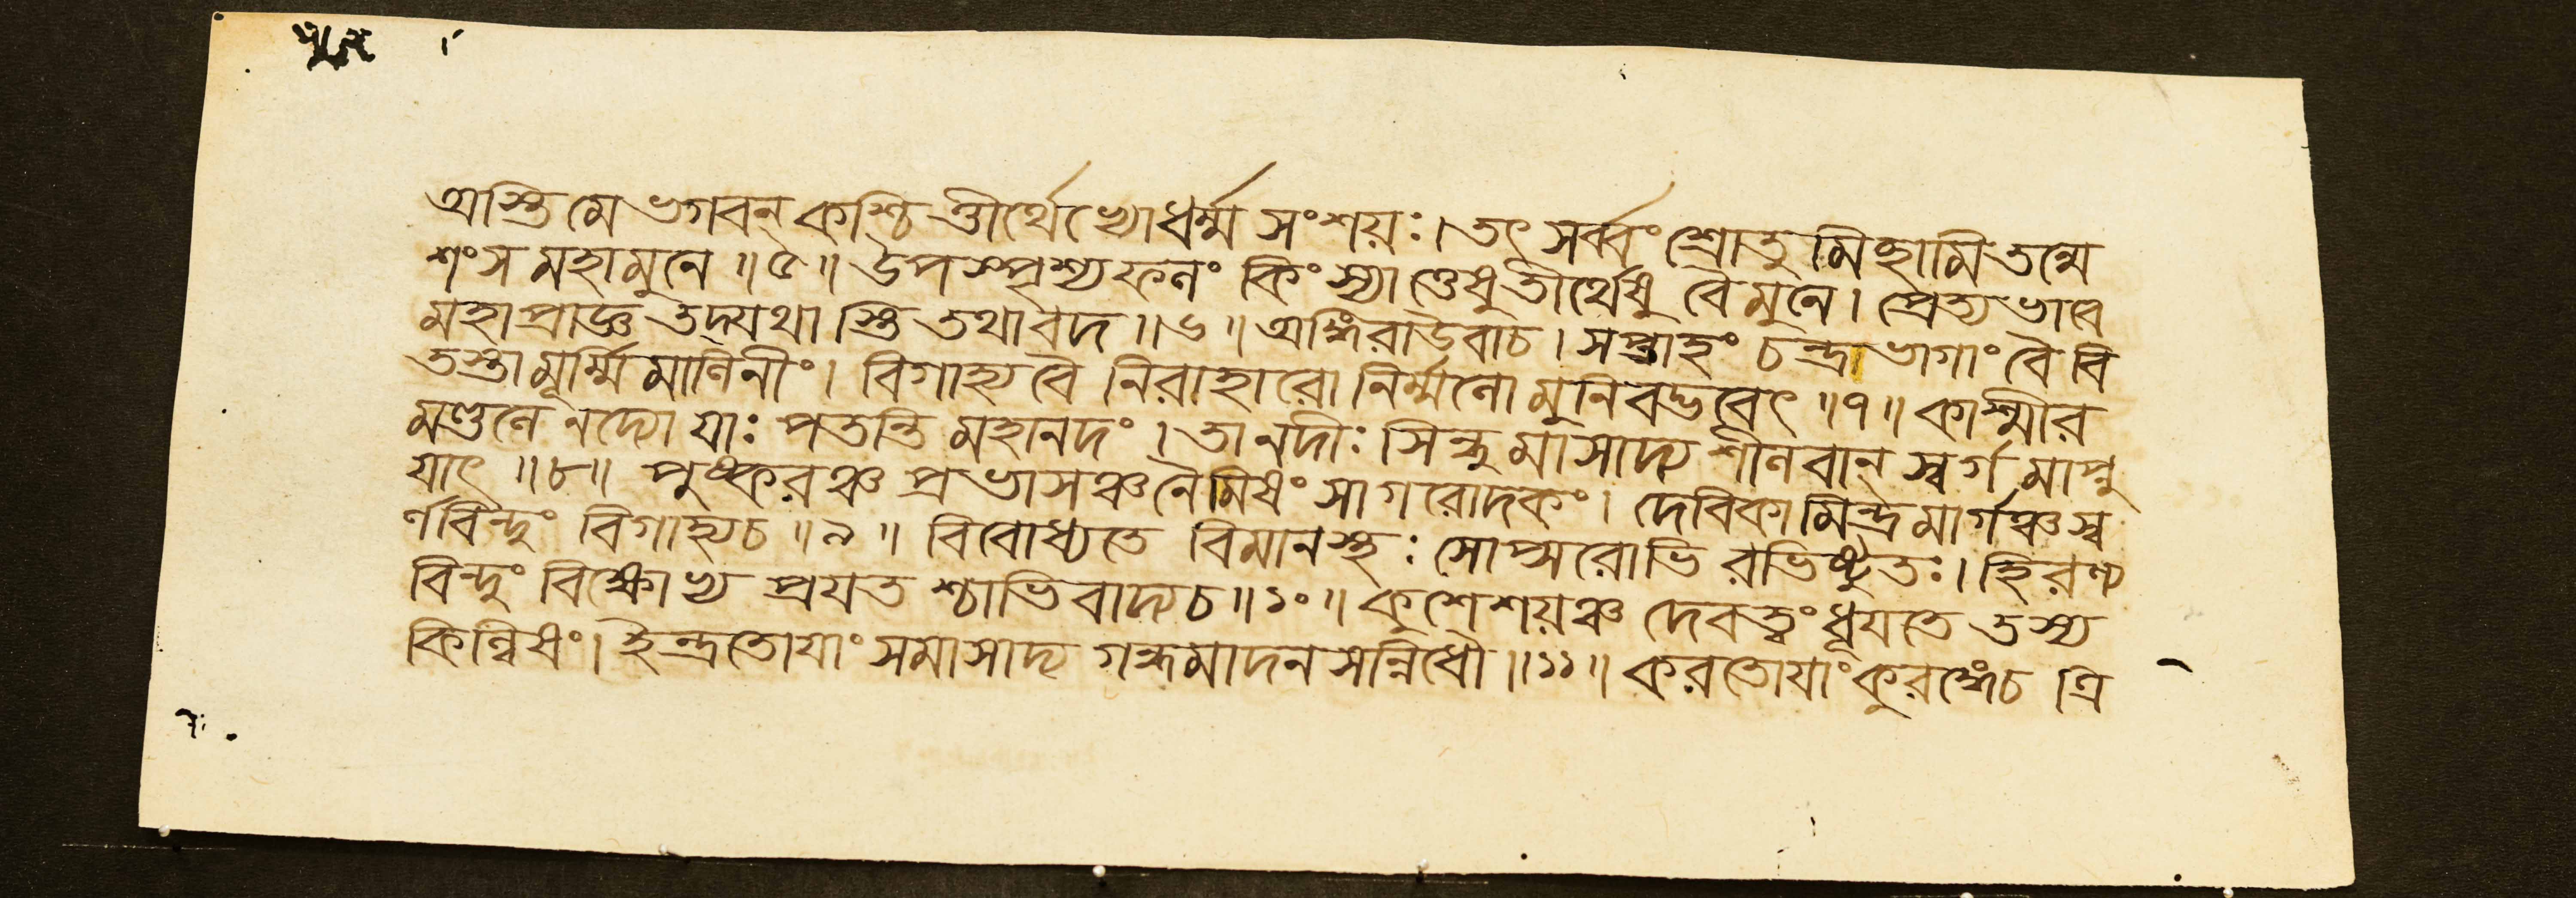 অস্তি মে ভগবন্ কশ্চিত্তীর্থেভ্যো ধর্ম্ম সংশয়ঃ। তৎ সর্ব্বং শ্রোতু মিচ্ছামি তন্মে
শংস মহামুনে ॥৫॥ উপস্পৃশ্য ফলং কিং স্যাত্তেষু তীর্থেষু বৈ মুনে। প্রেত্য ভাবে
মহাপ্রাজ্ঞ তদ্যথাস্তি তথাবদ ॥৬॥ অঙ্গিরাউবাচ। সপ্তাহং চন্দ্রাভাগাং বৈ বি
তস্তামূর্ম্মিমালিনীং। বিগাহ্য বৈ নিরাহারো নির্ম্মলো মুনিবদ্ভবেৎ ॥৭॥ কাশ্মীর
মণ্ডলে নদ্যো যাঃ পতন্তি মহানদং। তা নদীঃ সিন্ধুমাসাদ্য শীলবান্ স্বর্গ মাপ্নু
য়াৎ ॥৮॥ পুষ্করঞ্চ প্রভাসঞ্চ নৈমিষং সাগরোদকং। দেবিকামিন্দ্রমার্গঞ্চ স্ব
র্ণবিন্দুং বিগাহ্য চ ॥৯॥ বিবোধ্যতে বিমানস্থঃ সোপ্সরোভি রভিষ্টুতঃ। হিরণ্য
বিন্দুং বিক্ষোভ্য প্রযত শ্চাভিবাদ্য চ ॥১০॥ কুশেশয়ঞ্চ দেবত্বং ধূয়তে তস্য
কিল্বিষং। ইন্দ্রতোয়াং সমাসাদ্য গন্ধমাদন সন্নিধৌ ॥১১॥ করতোয়াং কুরঙ্গেচ ত্রি